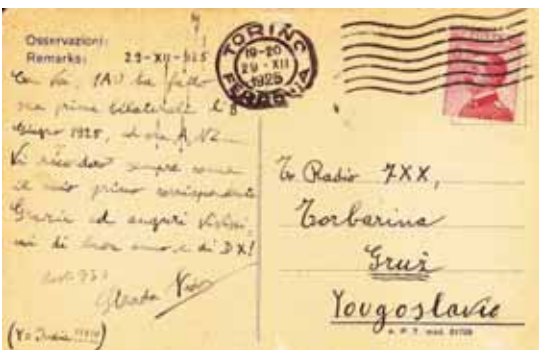 Osservazioni:
Remarks: 29-XII-925
Con Voi, 1AU ha fatto
sua prima bilaterale l' 8
giugno 1925, ed ora
Vi ricorderò sempre come
il mio primo corrispondente
Grazie ed auguri
di buon anno, e di DX!
Strada
TORINO
19-20
29-XII
1925
FERROVIA
To Radio 7XX,
Torbarina
Gruž
Yougoslavie